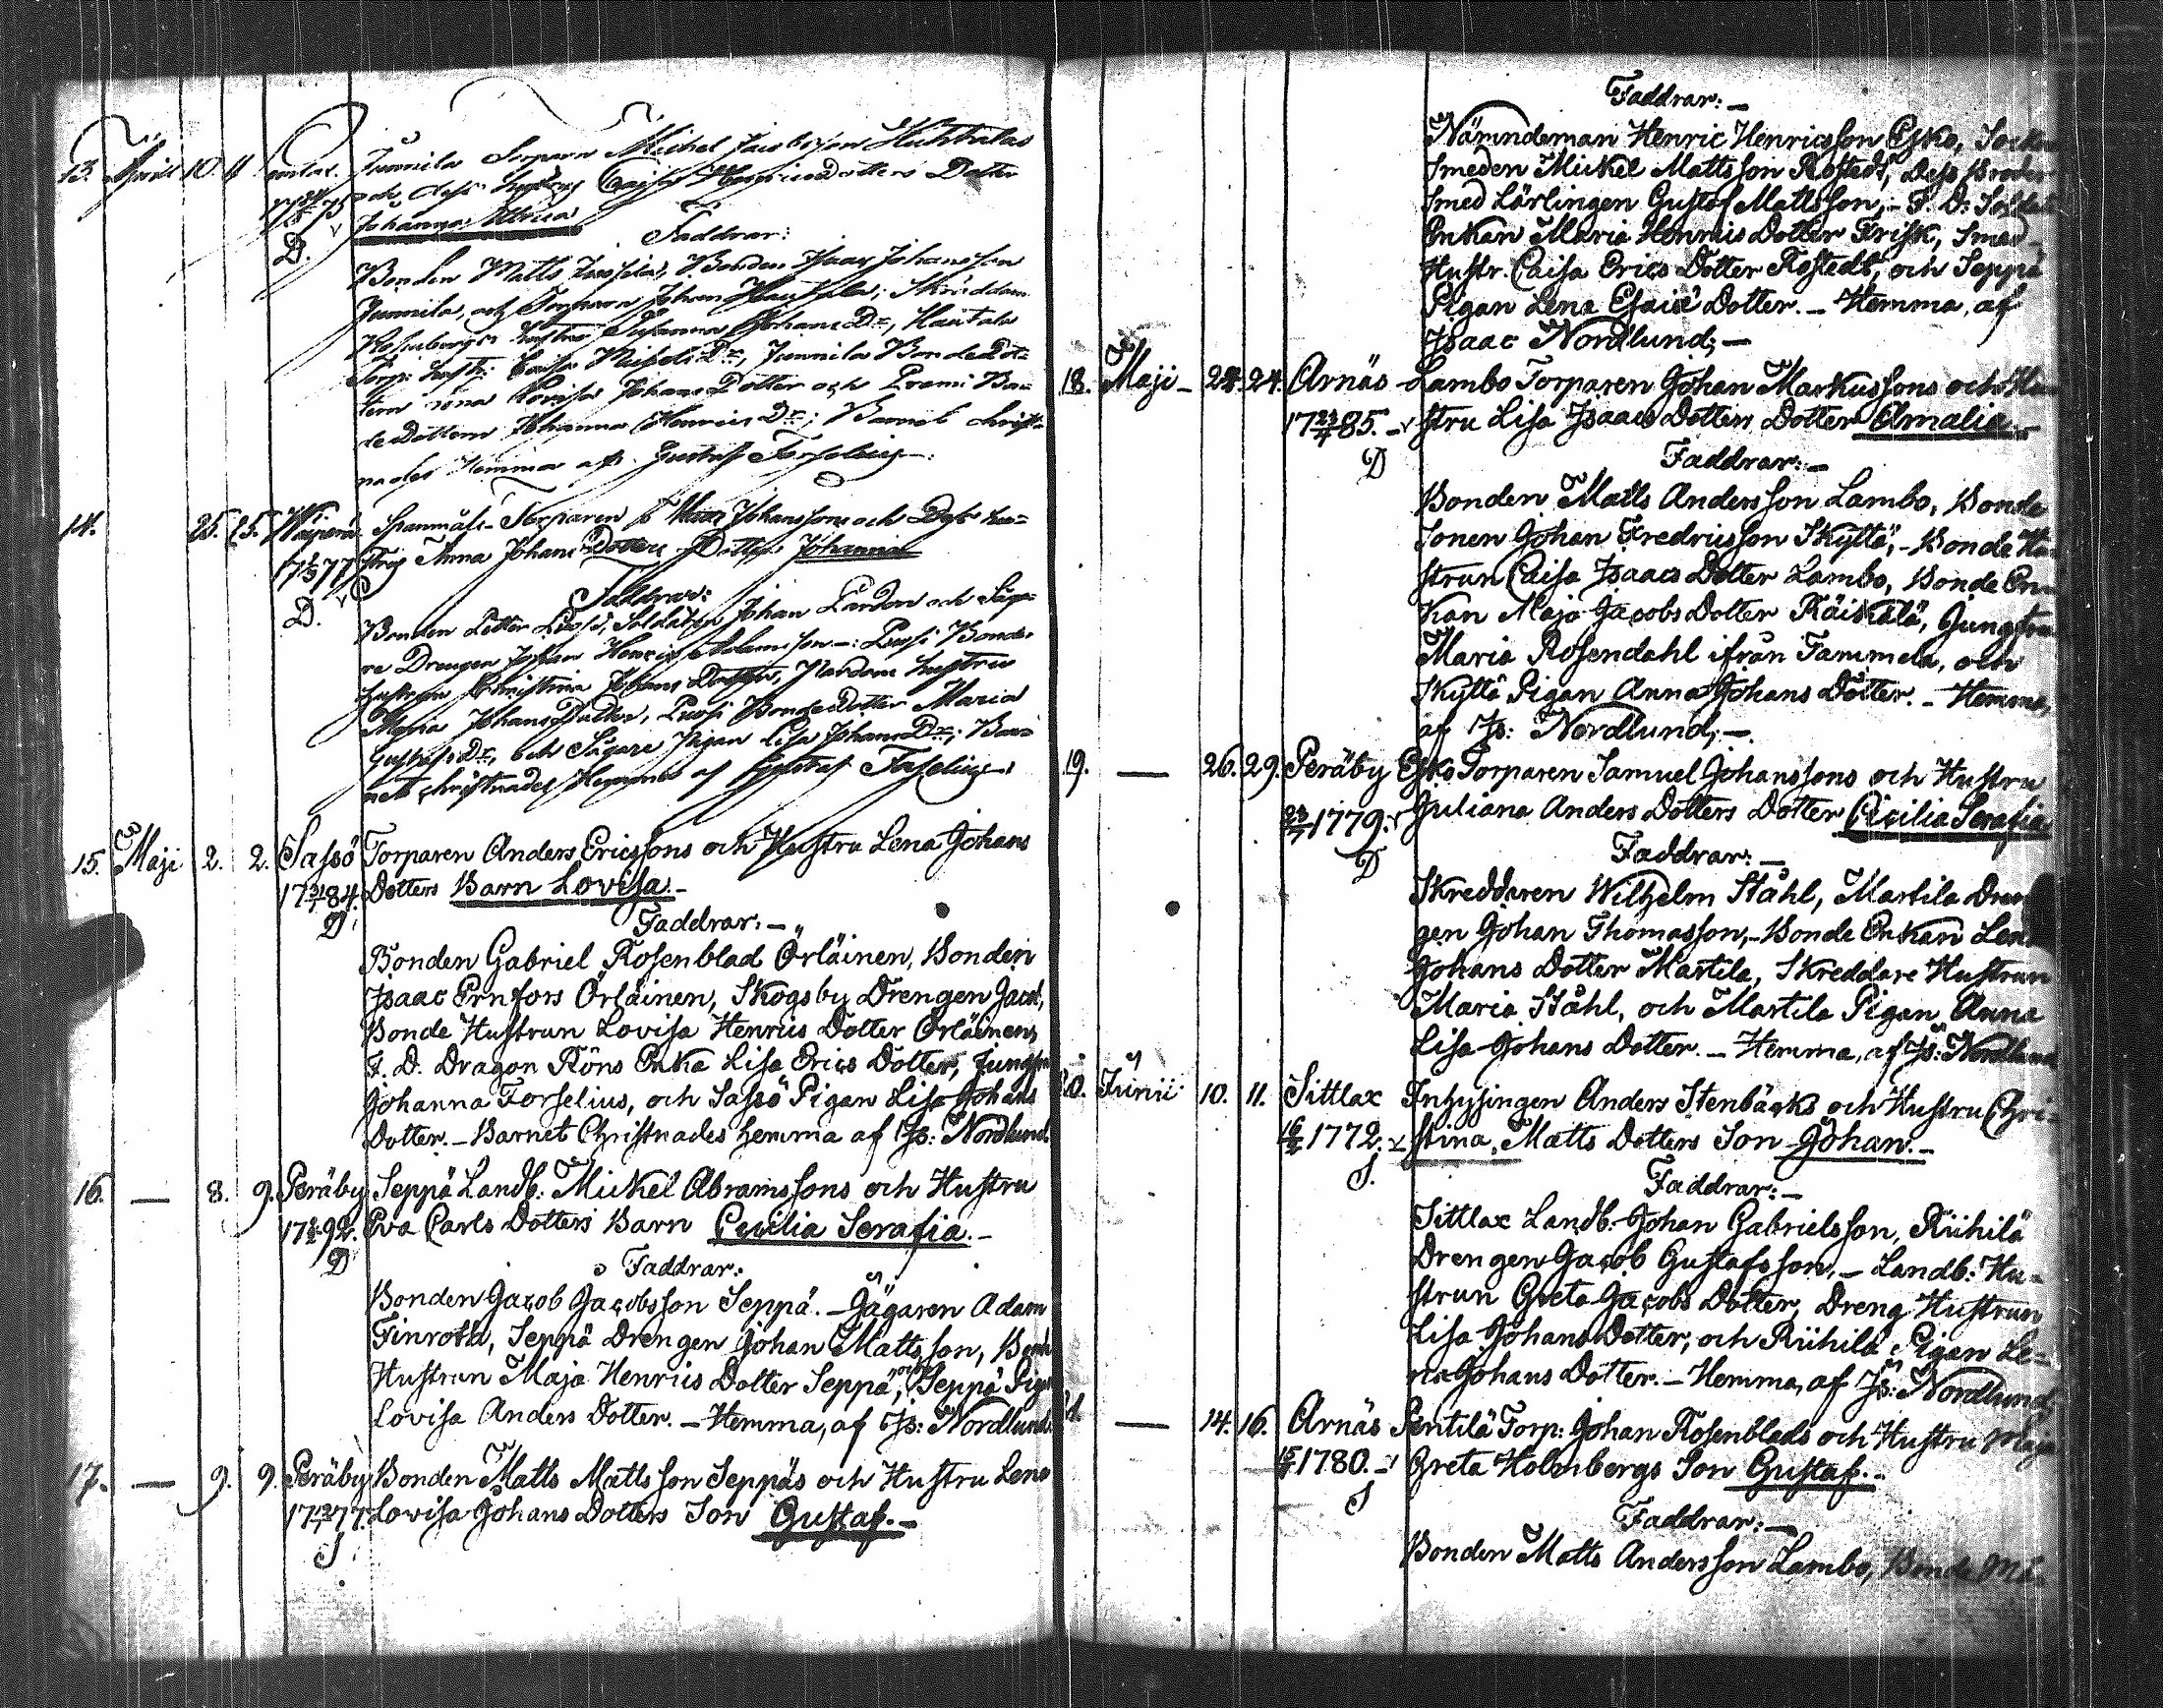 13. April 10. 11
Junnila Torparn Michel Jacobsson Huhtalas
och dess hustrus Caisa Henrics Dotters Dotter
Johanna Ulrica
D.
Faddrar:
Bonden Matts Jussila, Bonden Isaac Johansson
Junnila, och Torparn Johan Hautala; Skräddare
Rosenbergs hustru Susanna Johans Dr, Hautala
Torp: hustr: Caisa Michels Dr, Junnila Bonde Dot-
tern Lovisa Johans Dotter och Bon-
de Dottern Johanna Henrics Dr; Barnet christ-
nades Hemma af Gustaf Forselius.
14. 25. 25.
Torparen Johanssons och Dess hu-
strus Anna Johans Dotters Dotter Johanna
D.
Faddrar:
Bonden Petter Pussi, Soldaten Johan Pardon och Säga-
re Drengen Johan Henric Adamsson: Pussi Bonde
hustrun Christina Johans Dotter, Pardons hustru
Maria Johans Dotter, Pussi Bonde Dotter Maria
Gustafs Dr, och Sågare Pigan Lisa Johans Dr; Bar-
net christnades Hemma af Gustaf Forselius
15. Maji 2. 2. Sassö Torparen Anders Ericssons och Hustru Lena Johans
84. Dotters Barn Lovisa.-
D.
Faddrar:-
Bonden Gabriel Rosenblad Örläinen, Bonden
Isaac Ernfors Örläinen, Skogsby Drengen Jacob,
Bonde Hustrun Lovisa Henrics Dotter Örläinen,
F. D. Dragon Röns Enka Lisa Erics Dotter, Jungfru
Johanna Forselius, och Sassö Pigan Lisa Johans
Dotter.- Barnet Christnades hemma af Is: Nordlund.
16. — 8. 9. Peräby Seppä Landb: Mickel Abramssons och Hustru
92. Eva Carls Dotters Barn Cecilia Serafia.-
D
Faddrar:
Bonden Jacob Jacobsson Seppä.- Jägaren Adam
Finroth, Seppä Drengen Johan Mattsson, Bonde
Hustrun Maja Henrics Dotter Seppä, och Seppä Pigan
Lovisa Anders Dotter.- Hemma, af Is: Nordlund.
17. — 9. 9. Peräby Bonden Matts Mattsson Seppäs och Hustru Lena
77. Lovisa Johans Dotters Son Gustaf.-
S
Faddrar:-
Nämndeman Henric Henricsson Esko, Socken
Smeden Mickel Mattsson Rostedt, Dess Broder
Smed Lärlingen Gustaf Mattsson,- F. D: Soldat
Enkan Maria Henrics Dotter Frisk, Smed-
Hustr. Caisa Erics Dotter Rostedt, och Seppä
Pigan Lena Esaiæ Dotter.- Hemma, af
Isaac Nordlund;-
18. Maji- 24. 24. Arnäs Lambo Torparen Johan Markussons och Hu-
17 23/4 85. stru Lisa Isaacs Dotters Dotter Amalia.
D
Faddrar:-
Bonden Matts Andersson Lambo, Bonde
Sonen Johan Fredricsson Skyttä,- Bonde Hu-
strun Caisa Isaacs Dotter Lambo, Bonde En-
kan Maja Jacobs Dotter Räiskälä, Jungfru
Maria Rosendahl ifrån Tammela, och
Skyttä Pigan Anna Johans Dotter.- Hemma,
af Is: Nordlund;-.
19. — 26. 29. Peräby Esko Torparen Samuel Johanssons och Hustru
1779. Juliana Anders Dotters Dotter Cecilia Serafia
D
Faddrar:-
Skreddaren Wilhelm Ståhl, Martila Dren-
gen Johan Thomasson,- Bonde Enkan Lena
Johans Dotter Martila, Skreddare Hustrun
Maria Ståhl, och Martila Pigan Anna
Lisa Johans Dotter.- Hemma, af Is: Nordlund
20. Junii 10. 11. Sittlax Inhysingen Anders Stenbäcks och Hustru Chri-
1772. stina Matts Dotters Son Johan.-
S.
Faddrar:-
Sittlax Landb. Johan Gabrielsson, Riihilä
Drengen Jacob Gustafsson,- Landb: Hu-
strun Greta Jacobs Dotter, Dreng Hustrun
Lisa Johans Dotter, och Riihilä Pigan Le-
na Johans Dotter.- Hemma, af Is: Nordlund;
21. — 14. 16. Arnäs Pentilä Torp: Johan Rosenblads och Hustru Maja
1780.- Greta Holmbergs Son Gustaf.-
S
Faddrar:-
Bonden Matts Andersson Lambo, Bonde